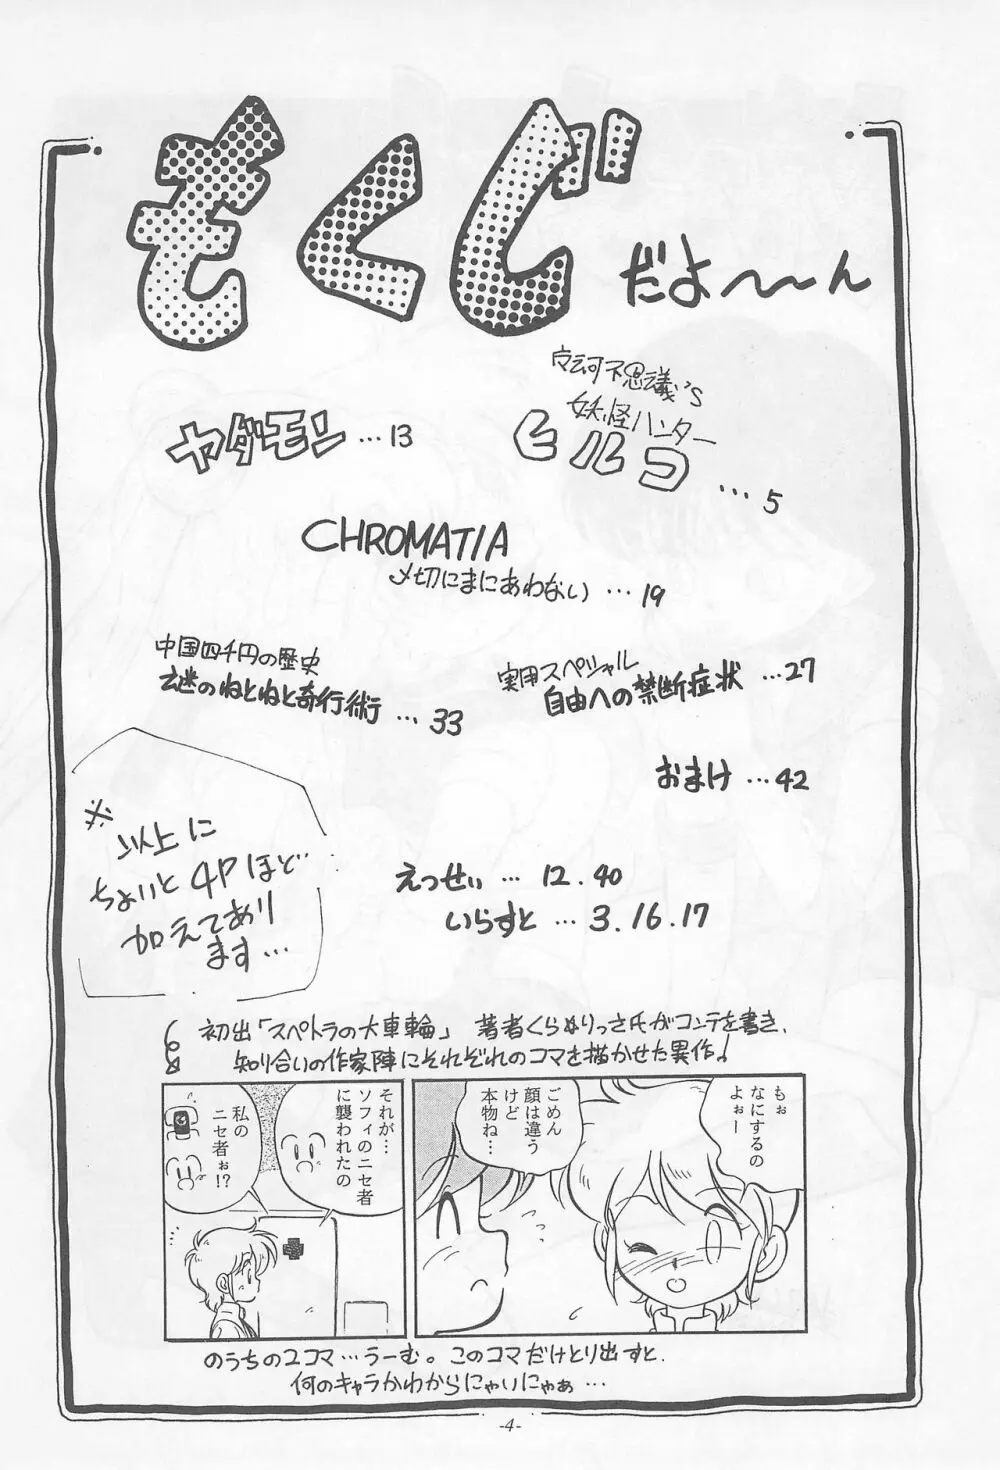 もくじ
だよ〜〜ん
白河不思議'S
妖怪ハンター
ヒルコ …5
ヤダモン …13
CHROMATIA
〆切にまにあわない …19
実用スペシャル
自由への禁断症状 …27
中国四千円の歴史
謎のねとねと奇行術 …33
おまけ …42
えっせい … 12.40
いらすと … 3.16.17
※
以上に
ちょいと4Pほど
加えてあり
ます…
初出「スペトラの大車輪」 著者くらぬりっさ氏がコンテを書き、
知り合いの作家陣にそれぞれのコマを描かせた異作!
もぉ
なにするの
よぉー
ごめん
顔は違う
けど
本物ね…
それが…
ソフィのニセ者
に襲われたの
私の
ニセ者ぉ!?
のうちの2コマ…うーむ。このコマだけとり出すと、
何のキャラかわからにゃいにゃぁ…
-4-